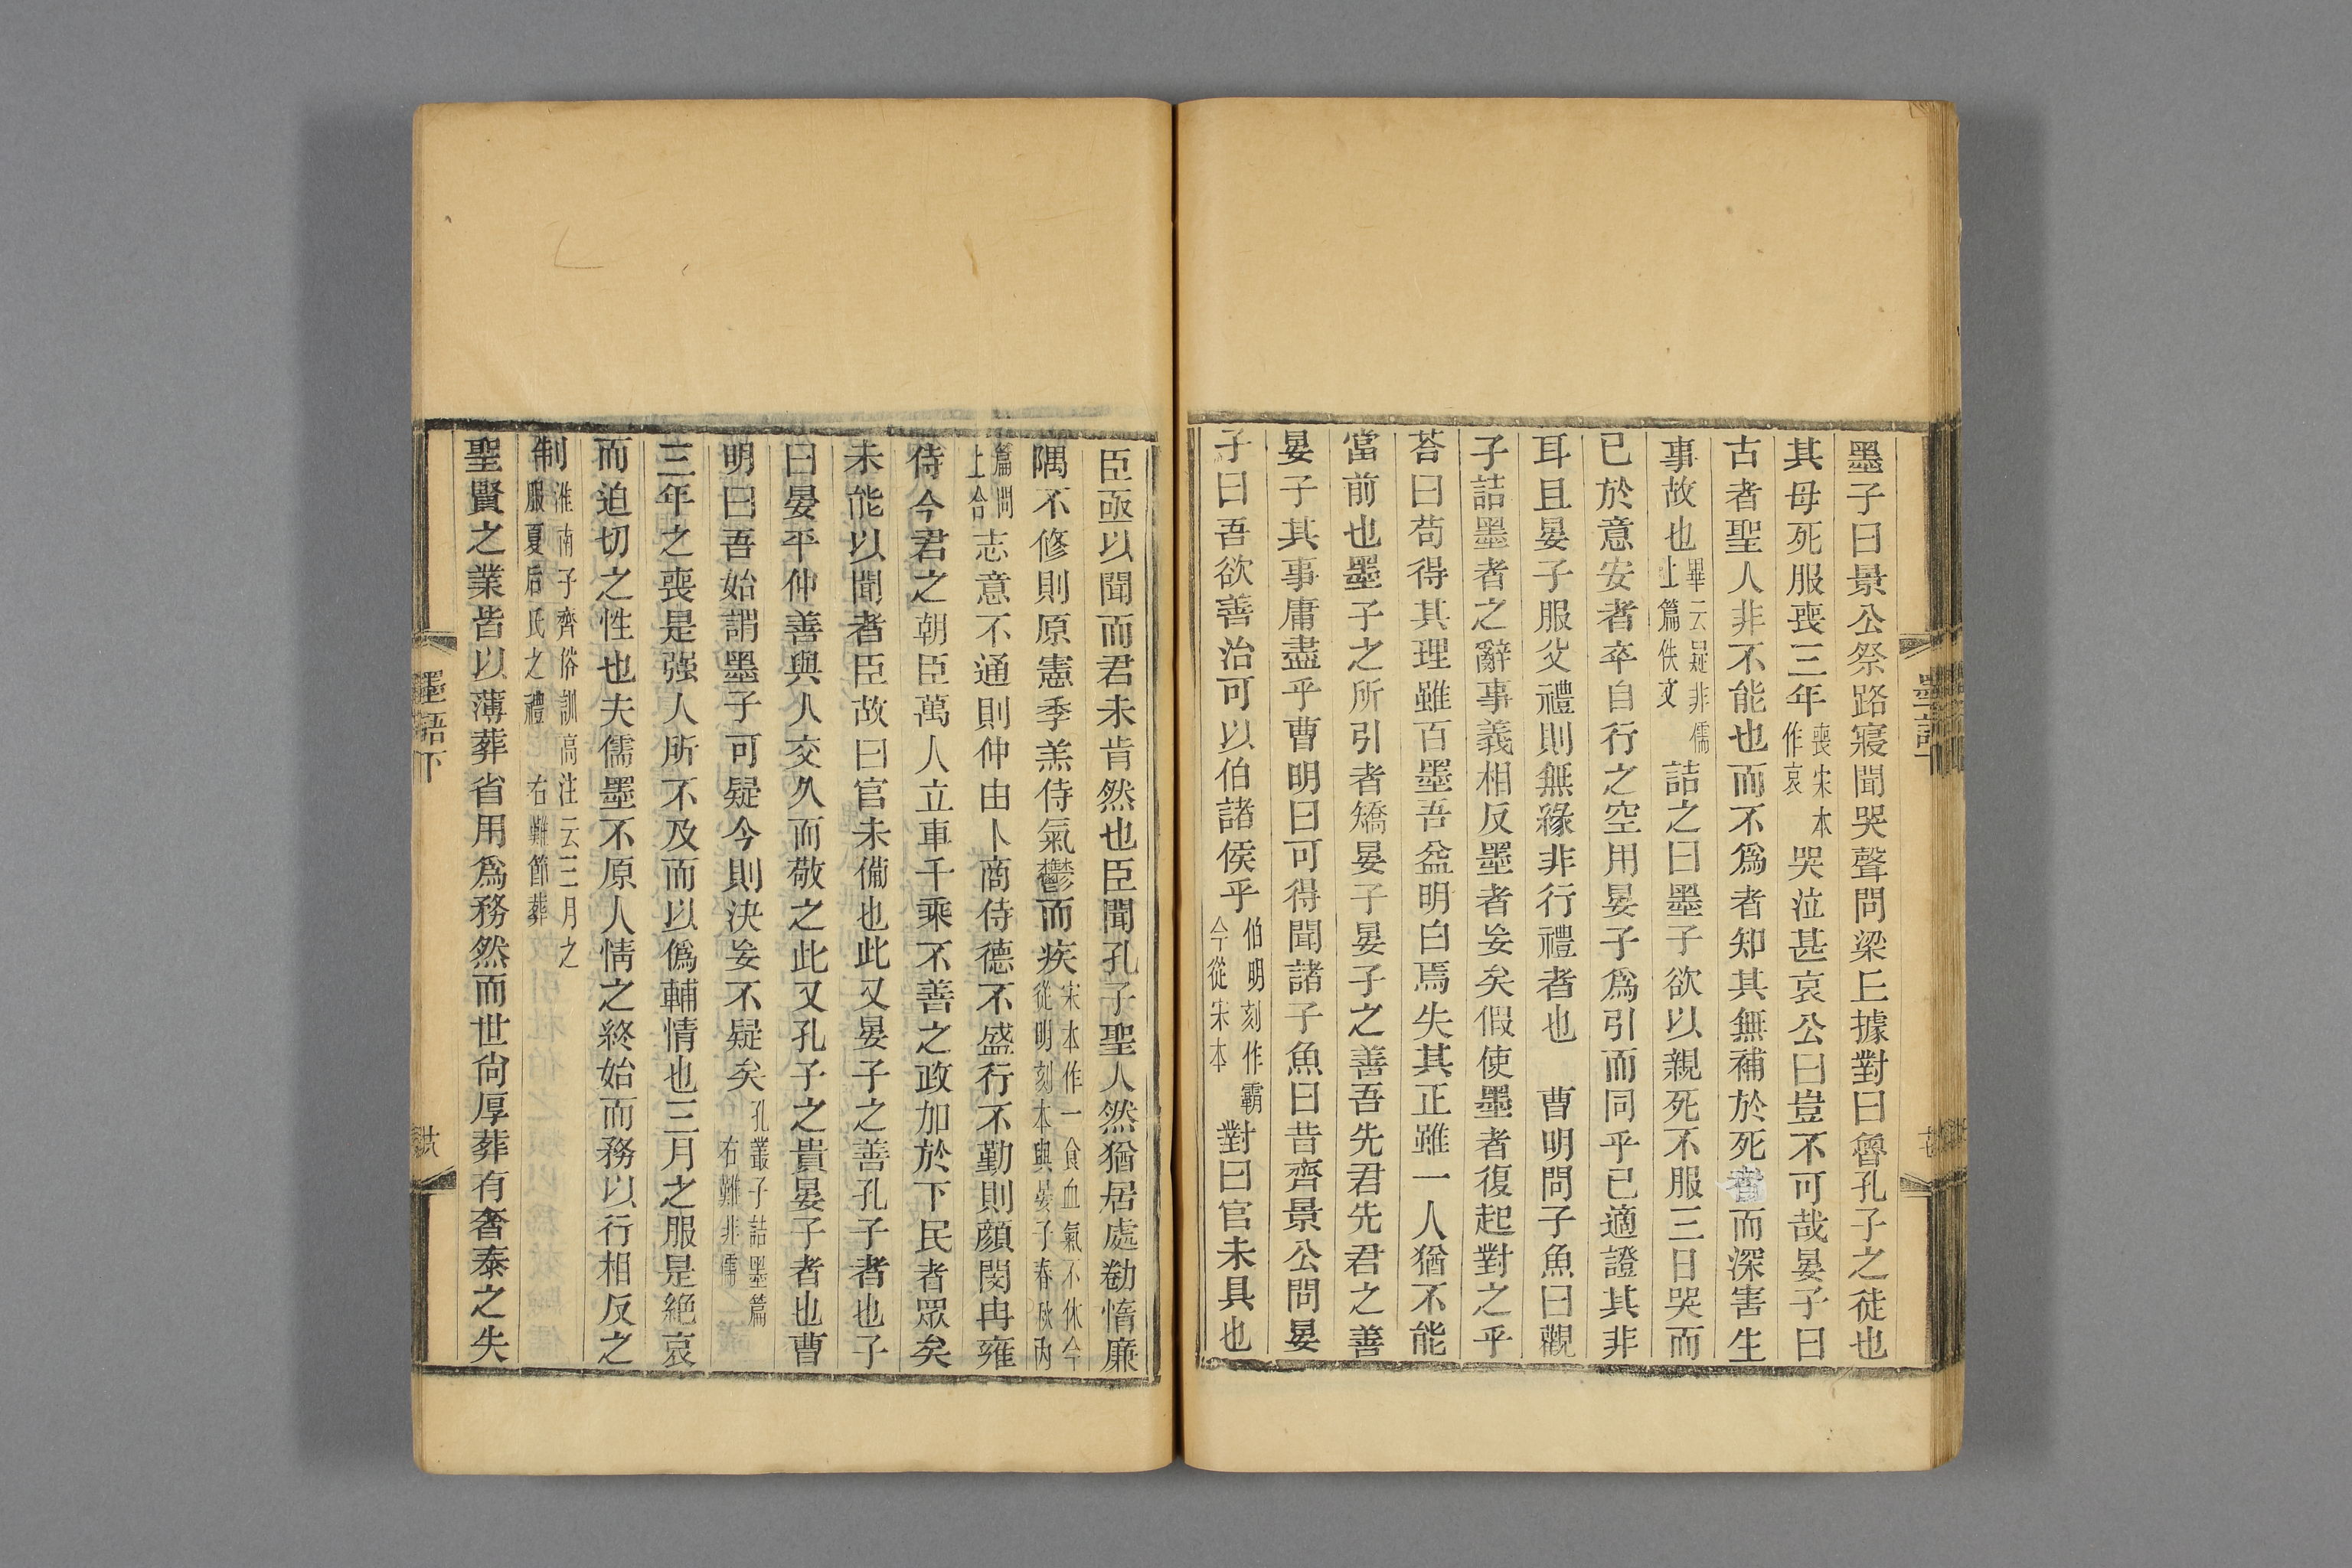 墨子曰景公祭路寢聞哭聲問梁丘據對曰魯孔子之徒也
其母死服喪三年喪宋本作哀哭泣甚哀公曰豈不可哉晏子曰
古者聖人非不能也而不爲者知其無補於死者而深害生
事故也畢云疑非儒上篇佚文詰之曰墨子欲以親死不服三日哭而
已於意安者卒自行之空用晏子爲引而同乎已適證其非
耳且晏子服父禮則無緣非行禮者也　曹明問子魚曰觀
子詰墨者之辭事義相反墨者妄矣假使墨者復起對之乎
荅曰苟得其理雖百墨吾益明白焉失其正雖一人猶不能
當前也墨子之所引者矯晏子晏子之善吾先君先君之善
晏子其事庸盡乎曹明曰可得聞諸子魚曰昔齊景公問晏
子曰吾欲善治可以伯諸侯乎伯明刻作霸今從宋本對曰官未具也
臣亟以聞而君未肯然也臣聞孔子聖人然猶居處勌惰廉
隅不修則原憲季羔侍氣鬱而疾宋本作一食血氣不休今從明刻本與晏子春秋內
篇問上合志意不通則仲由卜商侍德不盛行不勤則顏閔冉雍
侍今君之朝臣萬人立車千乘不善之政加於下民者眾矣
未能以聞者臣故曰官未備也此又晏子之善孔子者也子
曰晏平仲善與人交久而敬之此又孔子之貴晏子者也曹
明曰吾始謂墨子可疑今則決妄不疑矣孔叢子詰墨篇右難非儒
三年之喪是强人所不及而以僞輔情也三月之服是絶哀
而迫切之性也夫儒墨不原人情之終始而務以行相反之
制淮南子齊俗訓高注云三月之服夏后氏之禮　右難節葬
聖賢之業皆以薄葬省用爲務然而世尙厚葬有奢泰之失
墨語下